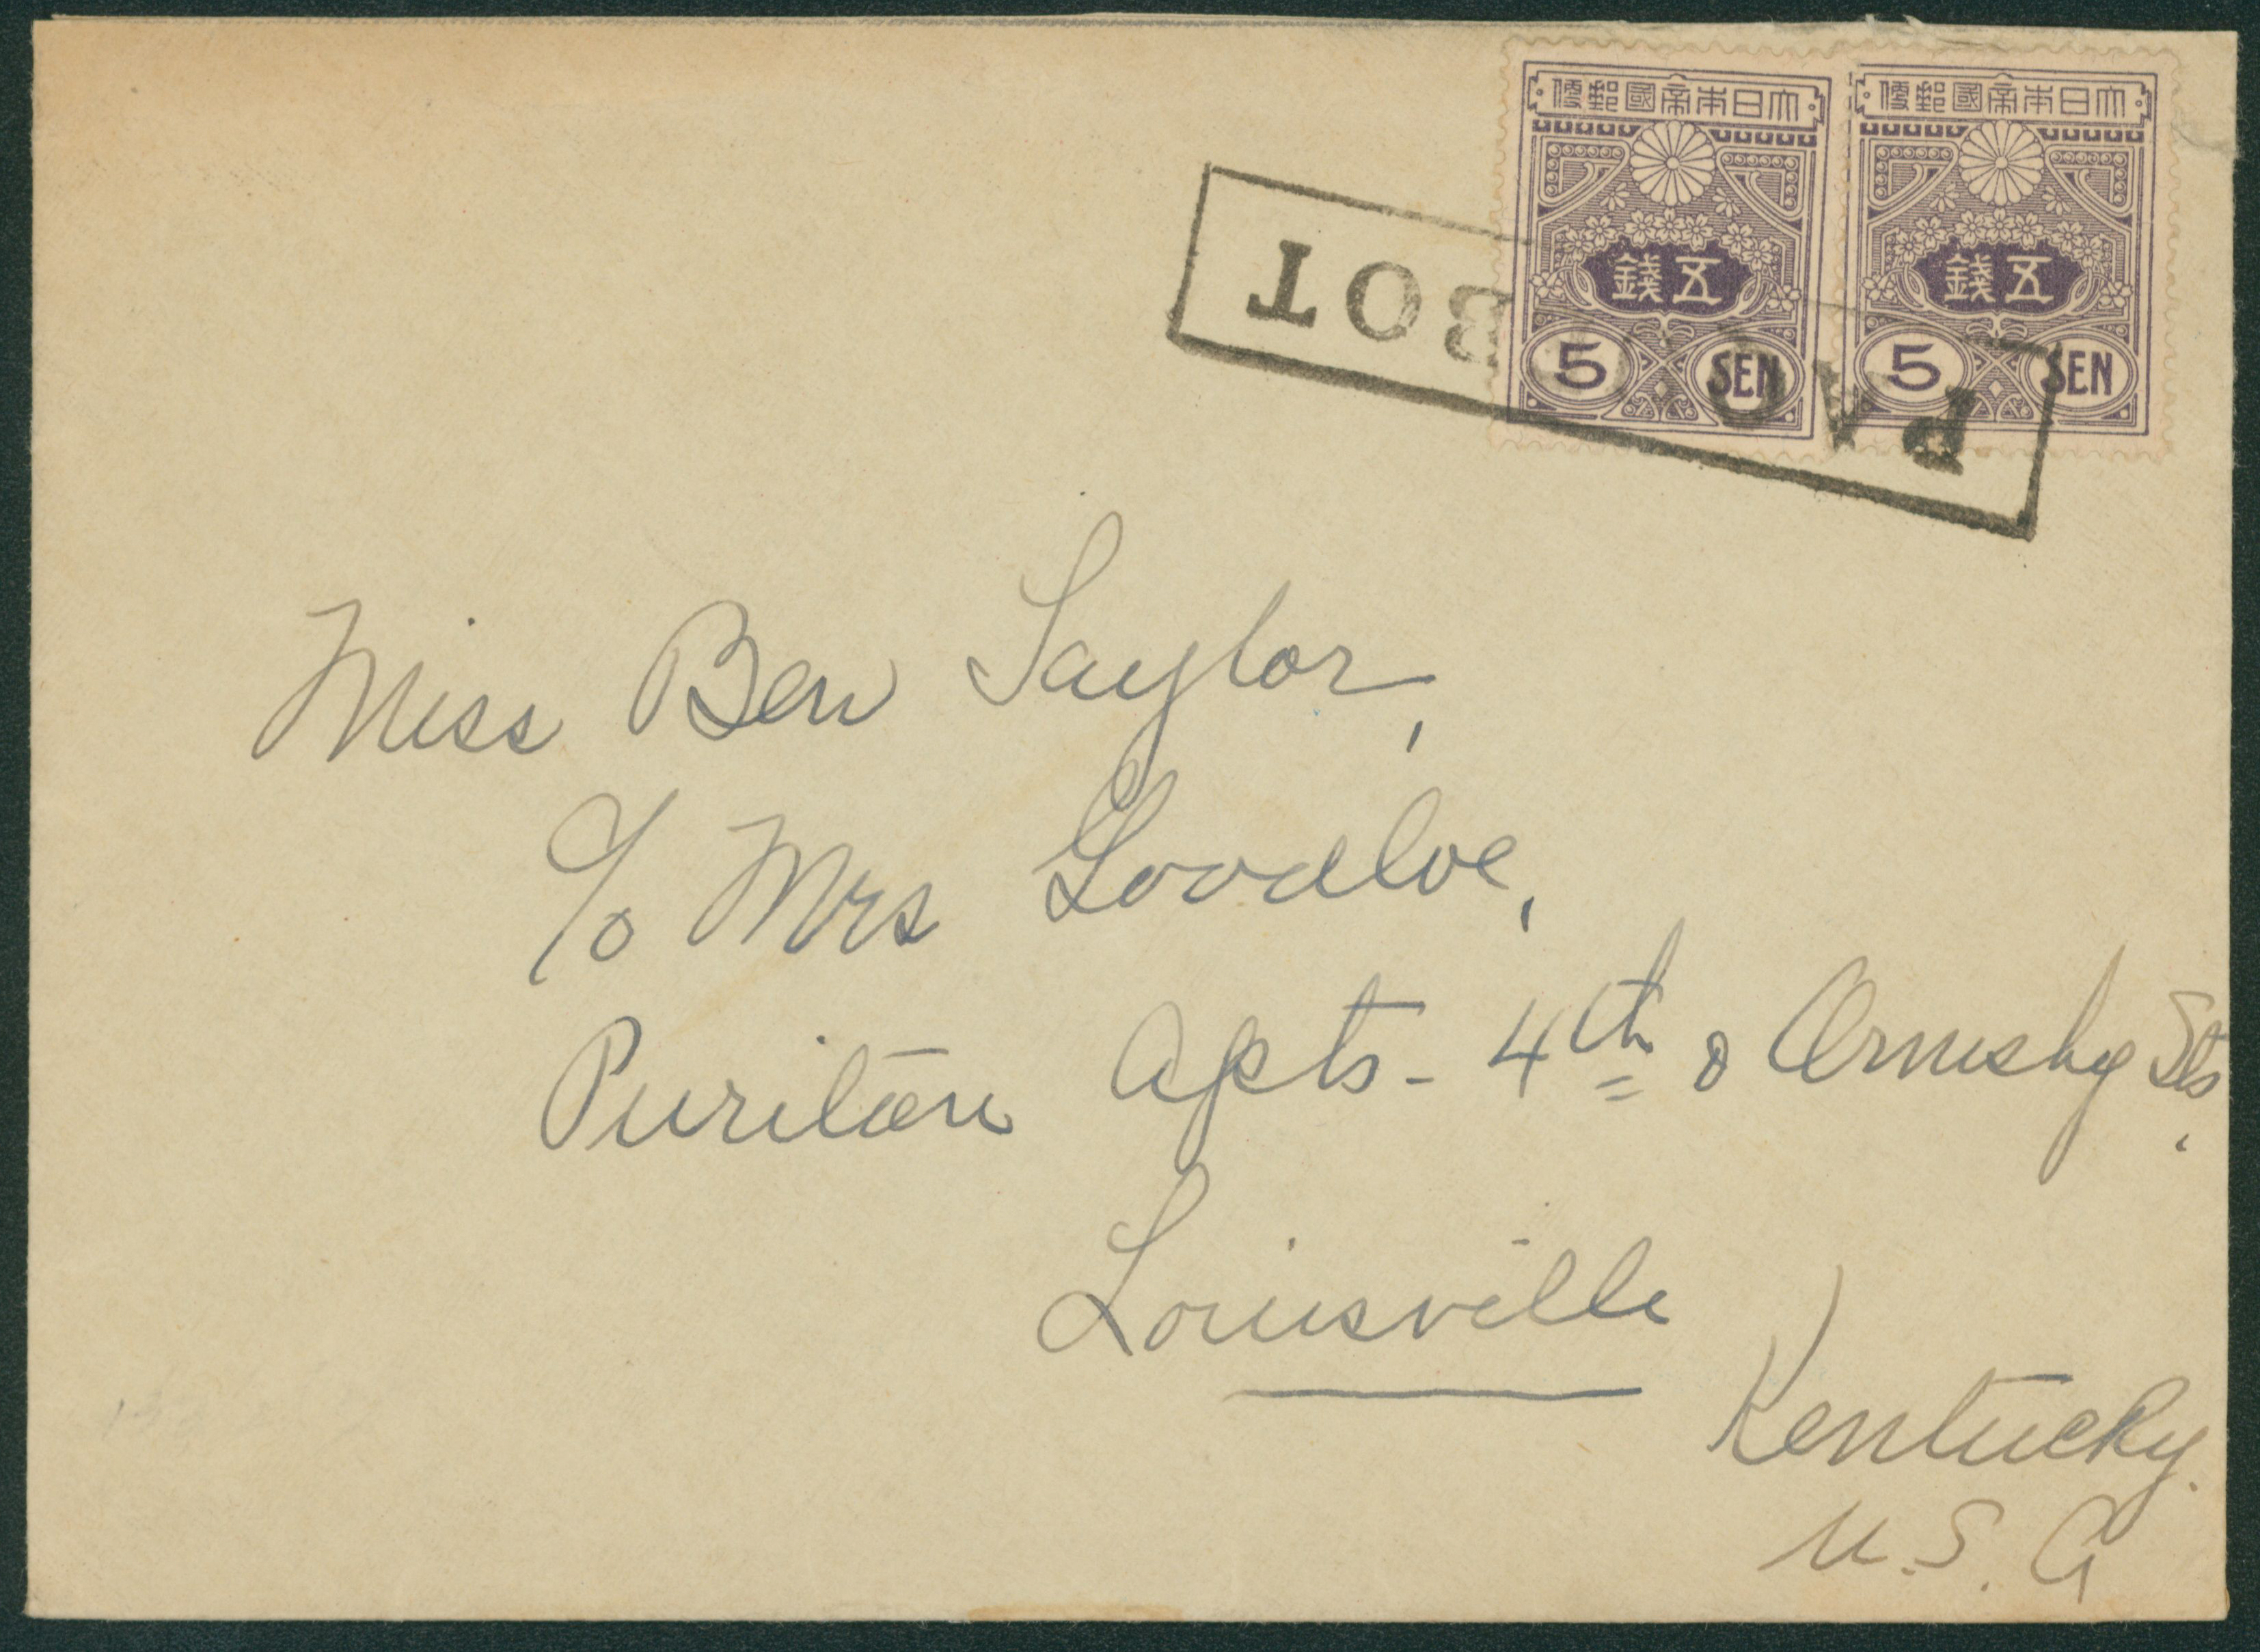 大日本帝國郵便 大日本帝國郵便
五錢 五錢
5 SEN 5 SEN
PAQUEBOT
Miss Ben Taylor,
c/o Mrs Goodloe,
Puritan Apts - 4th & Ormsby Sts.
Louisville
Kentucky.
U.S.A